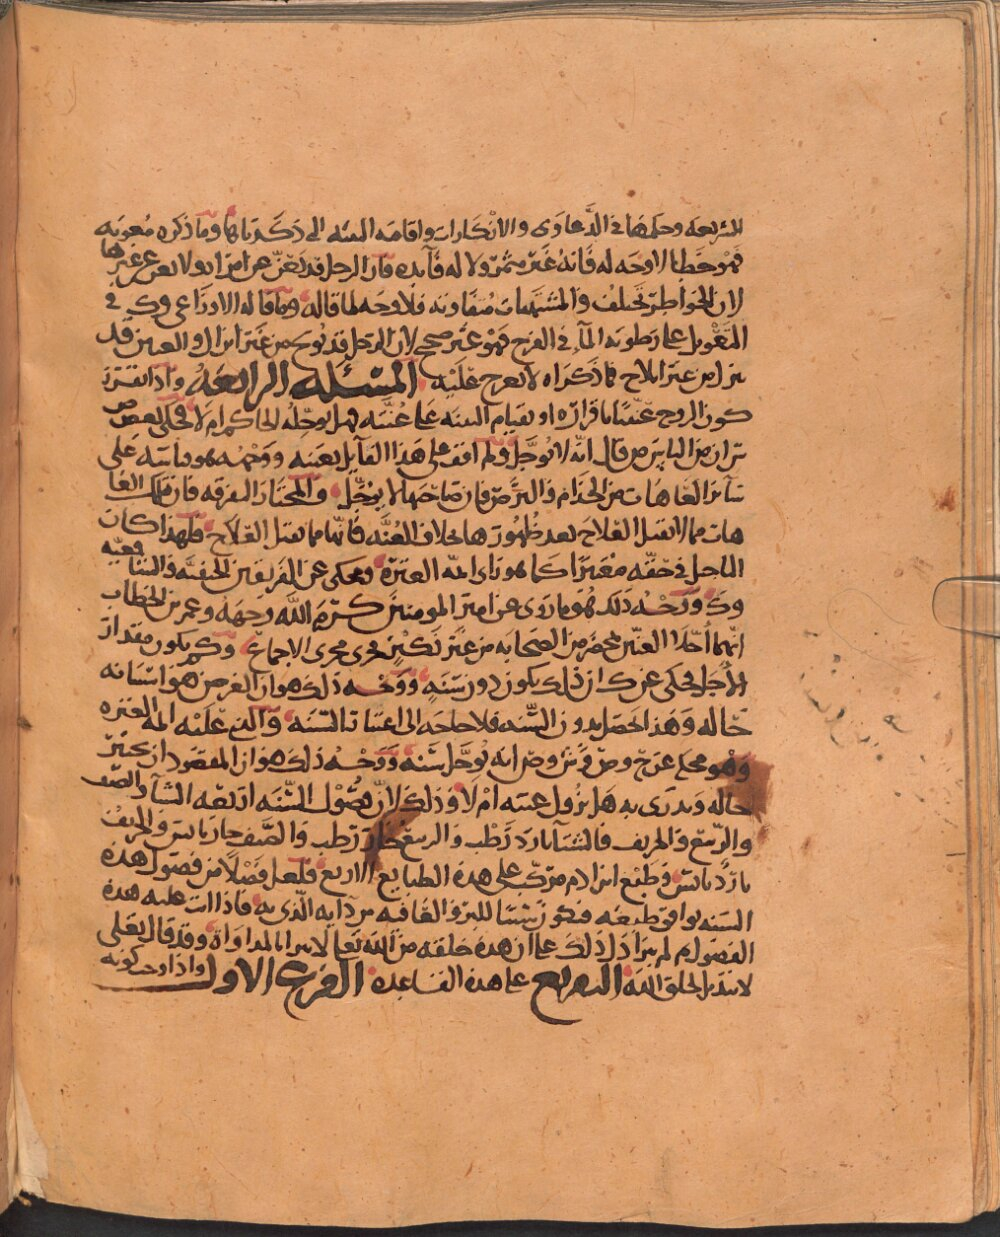 الشريعه وحكمها في الدَّعاوَى والانكارات واقامه البينه الى ذكرناها وما ذكره معويه
فهو خطا لا وجه له فانه غير مثمر ولا له فآيده فان الرجل قد يعنّ عن امراه ولا يعن عن غيرها
لان الخواطر تختلف والمشتهيات متفاوته فلا وجه لما قاله وما قاله الاوزاعى وكـ في
التعويل على رطوبه المآء في الفرج فهو غير صحيح لان الرجل قد يولج من غير انزال والعنين قد
ينزل من غير ايلاج فما ذكراه لا يعرج عليه المسئله الرابعه واذا تقرر
كون الزوج عنينا باقراره او بقيام البينه على عُنَّته فهل يوجله الحاكم ام لا فحكى بعض
من الناس من قال انه لا يوجل ولم اقف على هذا القايل بعينه ووجهه هو قياسه على
سائر العاهات من الجذام والبرص فان صاحبها لا يوجل والمختار التفرقه فان تلك العا
هات مما لا تقبل العلاج بعد ظهورها بخلاف العُنَّه فانها مما تقبل العلاج فلهذا كان
التاجيل في حقه معتبرا كما هو راى ايمه العتره ومحكى عن الفريقين الحنفيه والشافعيه
وكـ ووجه ذلك هو ما روى عن امير المومنين كرم الله وجهه وعمر بن الخطاب
انهما أجَّلا العنين بمحضر من الصحابه من غير نكير فجرى مجرى الاجماع وكم يكون مقدار
الأجل فحكى عن ك ان ذلك يكون دون سنه ووجه ذلك هو ان الغرض هو استبانه
حاله وهذا يحصل بدون السنه فلا حاجه الى اعتبار السنه والذى عليه ايمه العتره
وهو محكى عن ح وص وش وص انه يوجل سنه ووجه ذلك هو ان المقصود ان يختبر
حاله ويدرى به هل يزول عنته ام لا وذلك لان فصول السنه اربعه الشتآ والصيف
والربيع والخريف فالشتآ بارد رطب والربيع حار رطب والصيف حار يابس والخريف
بارد يابس وطبع ابن ادم مركب على هذه الطبايع الاربع فلعل فصلا من فصول هذه
السنه يوافق طبيعته فيكون سببا للبرو والعافيه من دآيه الذى به فاذا اتت عليه هذه
الفصول ولم يبرا دل ذلك على ان هذه خلقه من الله تعالى لا يبرا بالمداواه وقد قال تعلى
لا تبديل لخلق الله التفريع على هذه القاعده الفرع الاول واذا وجب كونه